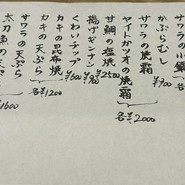 サワラの小鍋
かぶらむし ¥900
サワラの焼霜
ヤイトカツオの焼霜
各¥2000
甘鯛の塩焼 ¥2500
揚げギンナン ¥700
くわいチップ ¥600
カキの昆布焼
カキの天ぷら
各¥1200
サワラの天ぷら
太刀魚の天ぷら
¥1600